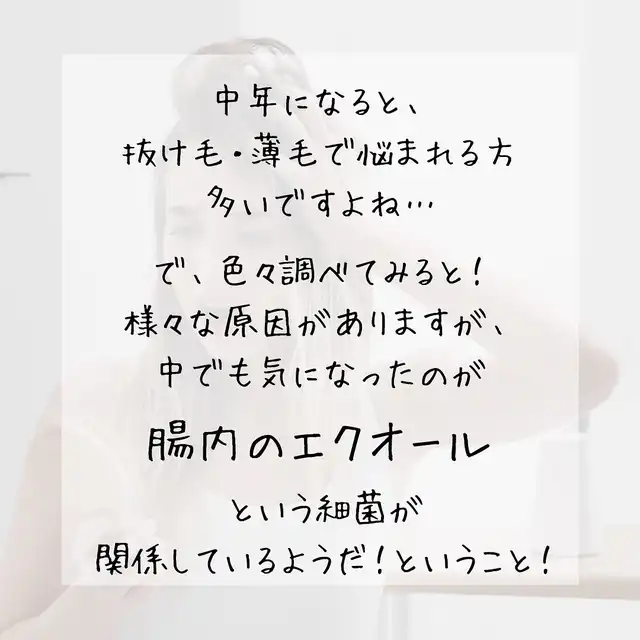 中年になると、
抜け毛・薄毛で悩まれる方
多いですよね…
で、色々調べてみると!
様々な原因がありますが、
中でも気になったのが
腸内のエクオール
という細菌が
関係しているようだ!ということ!